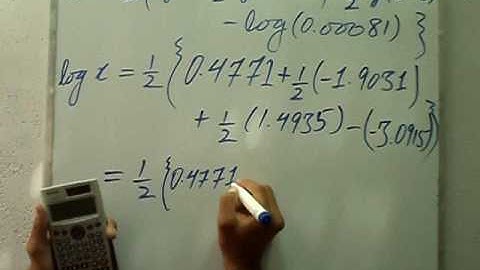 - log(0.00081)}
log x = 1/2 {0.4771 + 1/2 (-1.9031)
+ 1/2 (1.4935) - (-3.0915)}
= 1/2 {0.4771